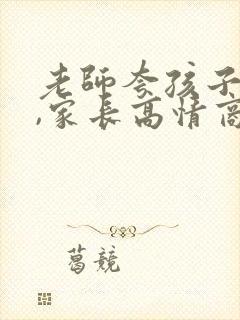 老師夸孩子
,家長高情商
葛競